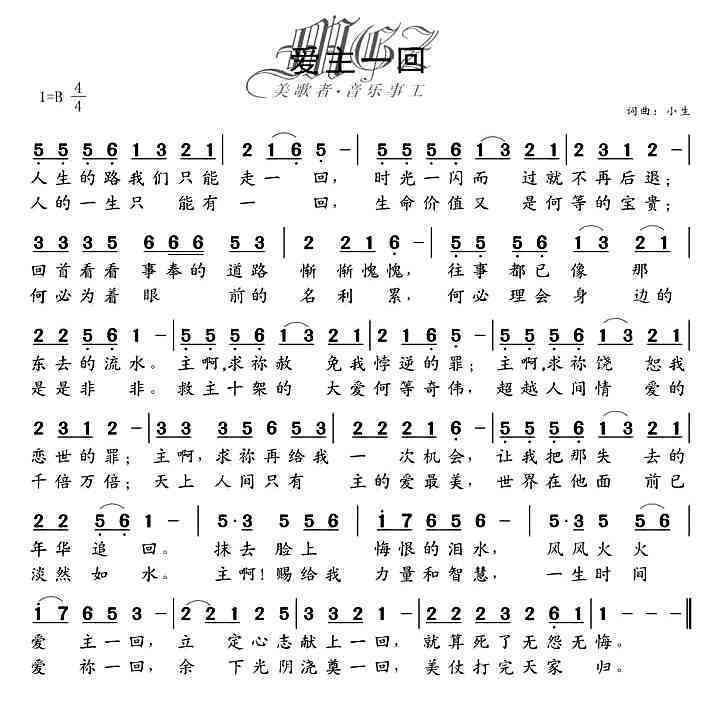 MGZ
爱主一回
美歌者·音乐事工
1=B 4/4
词曲：小生
5 5 5 6 1 3 2 1 | 2 1 6 5 - | 5 5 5 6 1 3 2 1 | 2 3 1 2 - |
人生的路我们只能 走一 回， 时光一闪而 过就不再后退；
人的一生只 能有一 回， 生命价值又 是何等的宝贵；
3 3 3 5 6 6 6 5 3 | 2 2 2 1 6 - | 5 5 5 6 1 3 2 1 |
回首看看 事奉的 道路 惭 惭愧愧， 往事 都已 像 那
何必为着 眼 前的 名利 累， 何必 理会 身 边的
2 2 5 6 1 - | 5 5 5 6 1 3 2 1 | 2 1 6 5 - | 5 5 5 6 1 3 2 1 |
东去的流水。 主啊,求祢赦 免我悖逆的罪； 主啊,求祢饶 恕我
是是非 非。 救主十架的 大爱何等奇伟， 超越人间情 爱的
2 3 1 2 - | 3 3 3 5 6 5 5 3 | 2 2 2 1 6 - | 5 5 5 6 1 3 2 1 |
恋世的罪； 主啊,求祢再给我 一 次机会， 让我把那失 去的
千倍万倍； 天上 人间只有 主的爱最美， 世界在他面 前已
2 2 5 6 1 - | 5·3 5 5 3 | 1 7 6 5 6 - | 5·3 5 5 6 |
年华 追 回。 抹去 脸上 悔恨的泪水， 风风火 火
淡然 如 水。 主啊！赐给我 力量和智慧， 一生时间
1 7 6 5 3 - | 2 2 1 2 5 | 3 2 1 2 - | 2 2 2 3 2 6 1 - ‖
爱 主一回， 立 定心志献上一回， 就算死了无怨无悔。
爱 祢一回， 余 下光阴浇奠一回， 美仗打完天家 归。